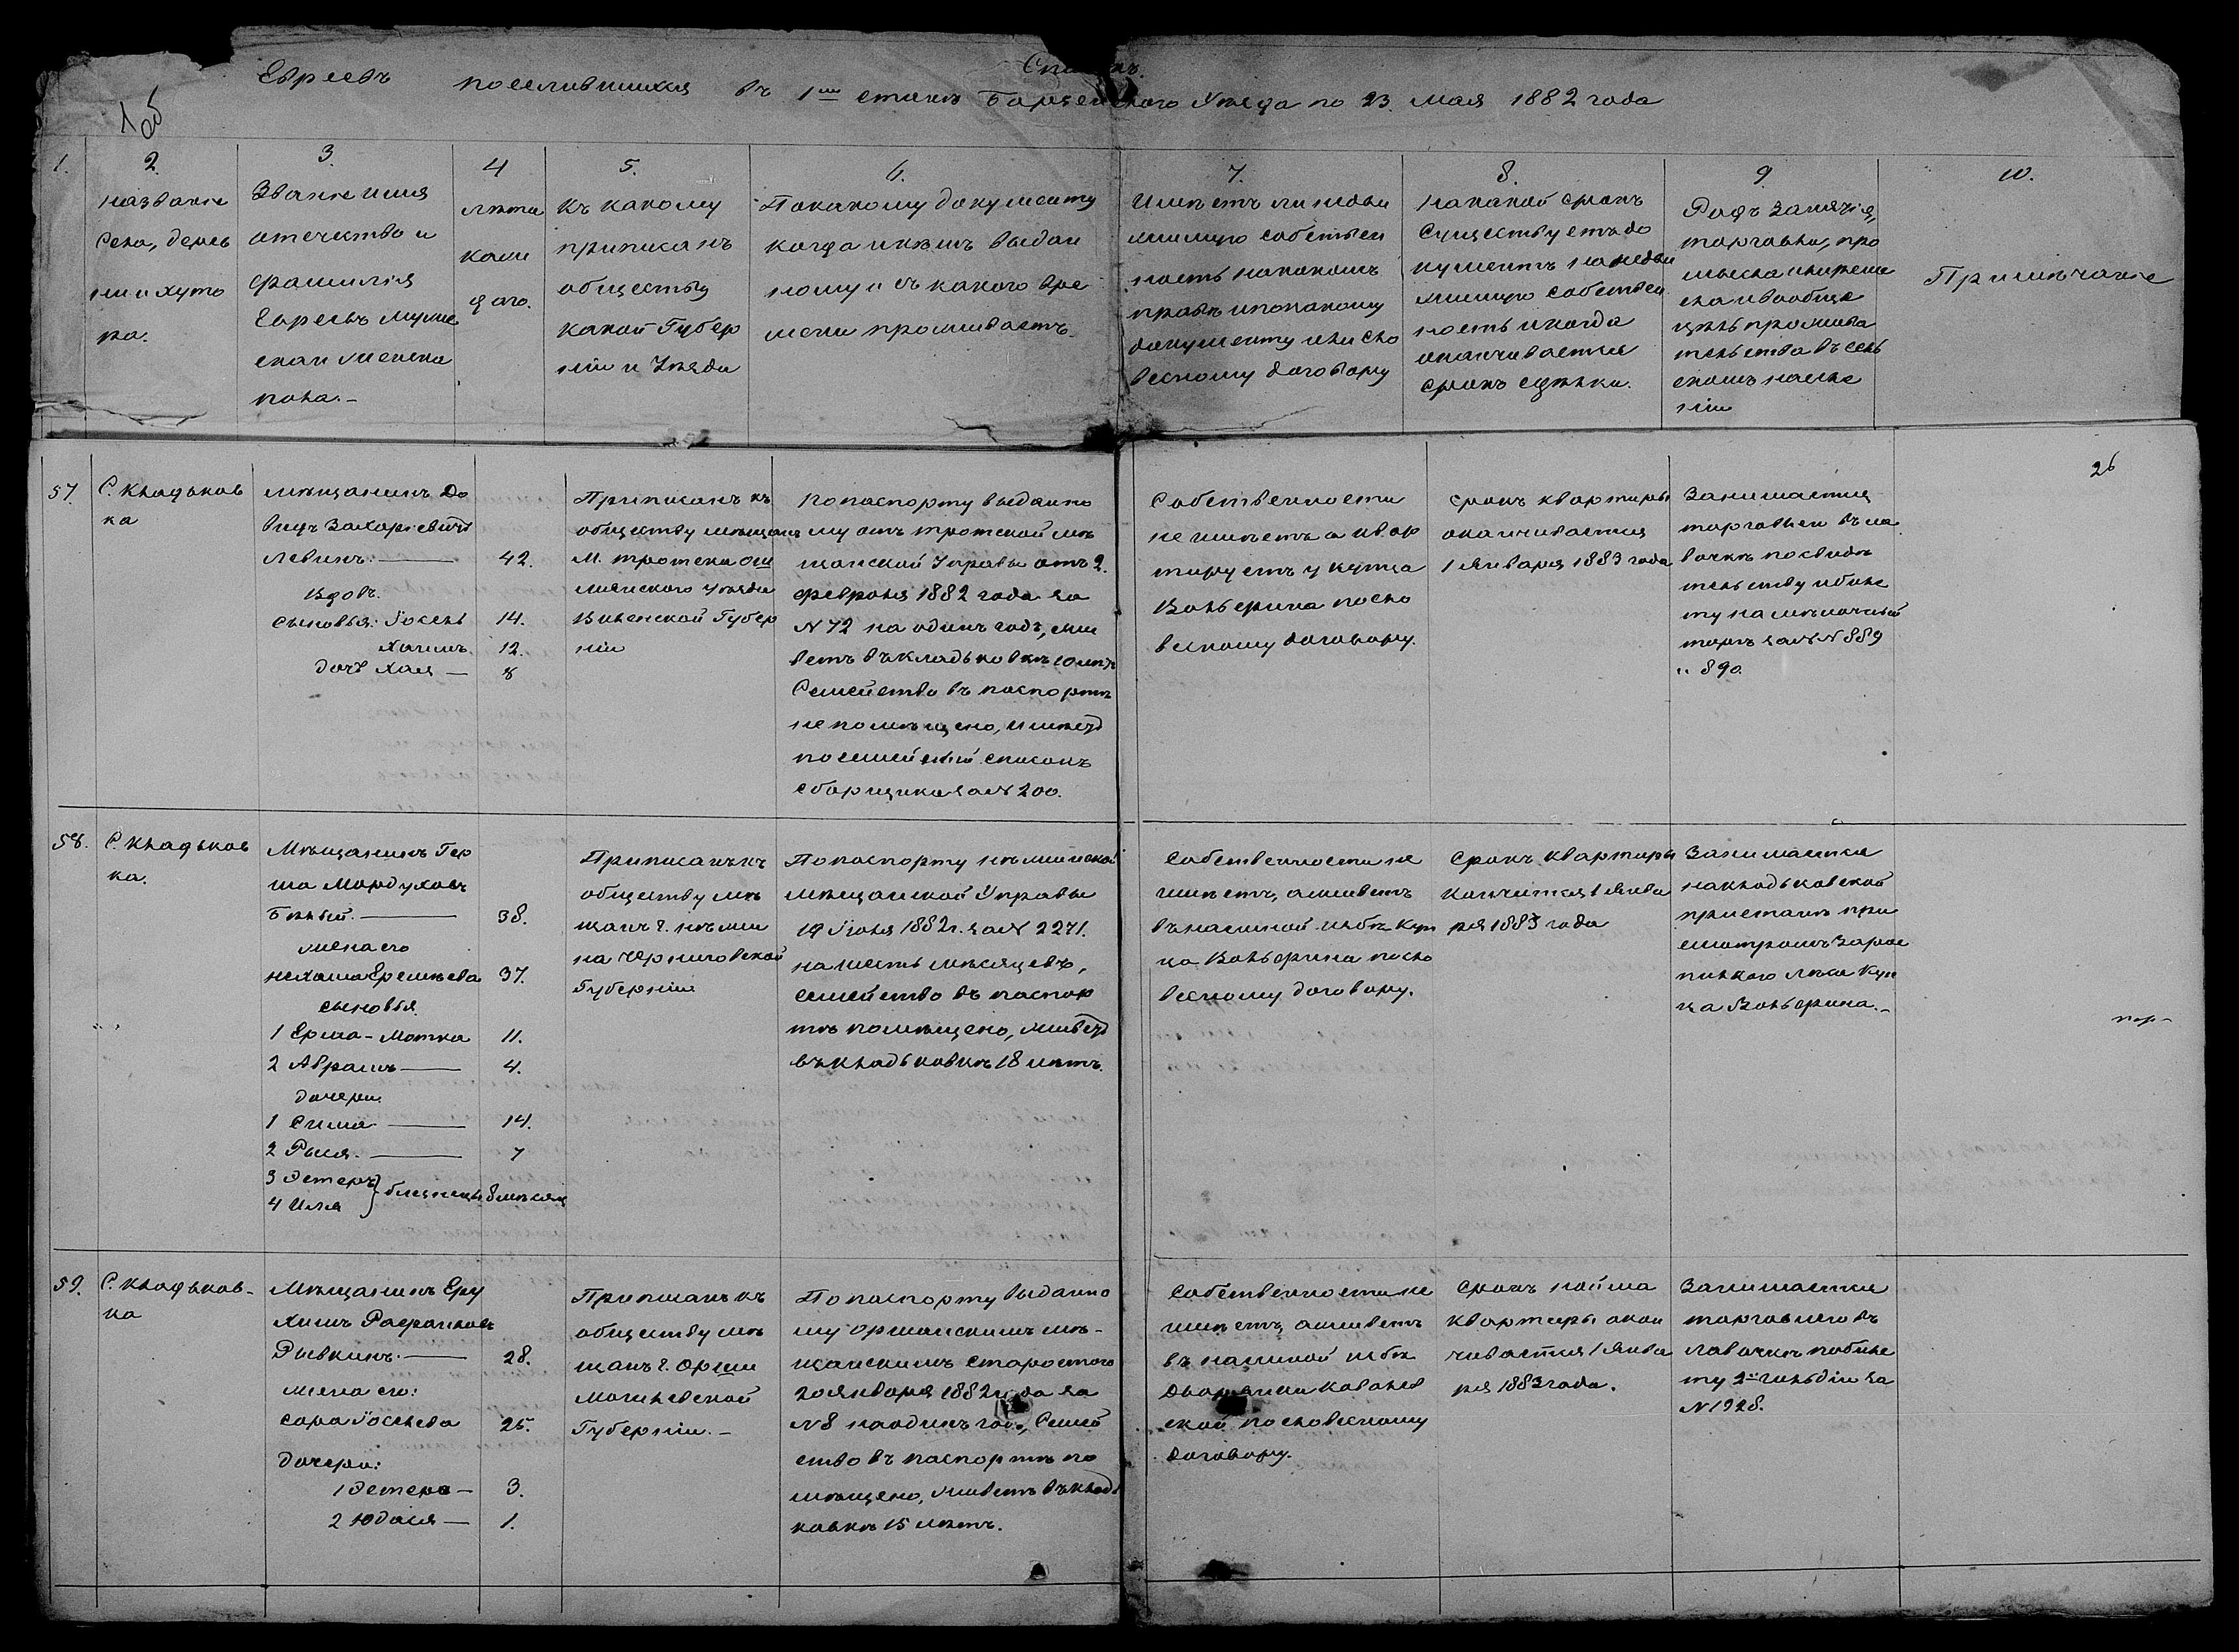 Списокъ.
Евреевъ поселившихся въ 1мъ станѣ Борзенского Уѣзда по 23 мая 1882 года
1об
1.
2.
названіе
Села, дерев
ни и хуто
ра.
3.
Званіе имя
отечество и
фамилія
Евреевъ муже
скаи женска
пола.–
4
лѣта
каж
даго.
5.
Къ какому
приписанъ
обществу
какой Губер
ніи и Уѣзда
6.
По какому документу
когда и кѣмъ выдан
ному и съ какого вре
мени проживаетъ.
7.
Имѣетъ ли недви
жимую собствен
ность на какомъ
правѣ и по какому
документу или сло
весному договору
8.
На какой срокъ
Существуетъ до
кументъ на недви
жимую собствен
ность и когда
оканчивается
срокъ сдѣлки.
9.
Родъ занятія,
торговли, про
мысла и ремес
ла и вообще
цѣль прожива
тельства въ сель
скомъ населе
ніи
10.
Примѣчаніе
26
57.
С. Кладьков
ка
мѣщанинъ До
видъ Захаріевичъ
Левинъ.—— 42.
Вдовъ.
Сыновья: Іосель 14.
Хаимъ 12.
дочь Хая — 8
Приписанъ къ
обществу мѣщанъ
М. тротска Ош
мянского уѣзда
Виленской Губер
ніи
по паспорту выданно
му отъ тротской мѣ
щанской Управы отъ 2.
февраля 1882 года за
N 72 на одинъ годъ, жи
ветъ въ кладьковкѣ 10 лѣтъ
Семейство въ паспортѣ
не помѣщено, имѣетъ
посемейный списокъ
сборщика за N 200.
Собственности
не имѣетъ а квар
тируетъ у купца
Вольерина посло
весному договору.
срокъ квартиры
оканчивается
1 Января 1883 года
Занимается
торговлей въ ла
вочкѣ по свидѣ
тельству и биле
ту на мѣлочный
торгъ за N N 889
и 890.
58.
С. Кладьков
ка.
Мѣщанинъ Гер
ша Мордуховъ
Бѣлый. —— 38.
жена его
нехама Еремѣева 37.
сыновья
1 Ерша-Мотка 11.
2 Абрамъ —— 4.
дочери
1 Сима —— 14.
2 Рыся. —— 7
3 Эстеръ
4 Илья } близнецы 8 мѣсяц
Приписанъ къ
обществу мѣ
щанъ г. нѣжи
на Черниговской
Губерніи
По паспорту нѣжинской
мѣщанской Управы
19 Іюня 1882 г. за N 2271.
на шесть мѣсяцевъ,
семейство въ паспор
тѣ помѣщено, живетъ
въ кладьковкѣ 18 лѣтъ.
Собственности не
имѣетъ, а живетъ
въ наемной избѣ куп
ца Вольерина посло
весному договору.
Срокъ квартиры
кончится 1 Янва
ря 1883 года
Занимается
на кладьковской
пристани при
смотромъ за
лѣса куп
ца Вольерина.–
59.
С. Кладьков-
ка
Мѣщанинъ Еру
химъ Рафаиловъ
Рывкинъ. —— 28.
жена его:
Сора Іоселева 25.
дочери:
1 Эстера — 3.
2 Юдася — 1.
Приписанъ къ
обществу мѣ
щанъ г. Орши
Могилевской
Губерніи.–
По паспорту выданно
му оршанскимъ мѣ-
щанскимъ старостою
20 Января 1882 года за
N 8 на одинъ годъ, Семей
ство въ паспортѣ по
мѣщено, живетъ въ кладь
ковкѣ 15 лѣтъ.
Собственности не
имѣетъ, а живетъ
въ наемной избѣ
дворянки Ковалев
ской по словесному
договору.
Срокъ найма
квартиры окан
чивается 1 Янва
ря 1883 года.
Занимается
торговлею въ
лавочкѣ по биле
ту 2й гильдіи за
N 1928.